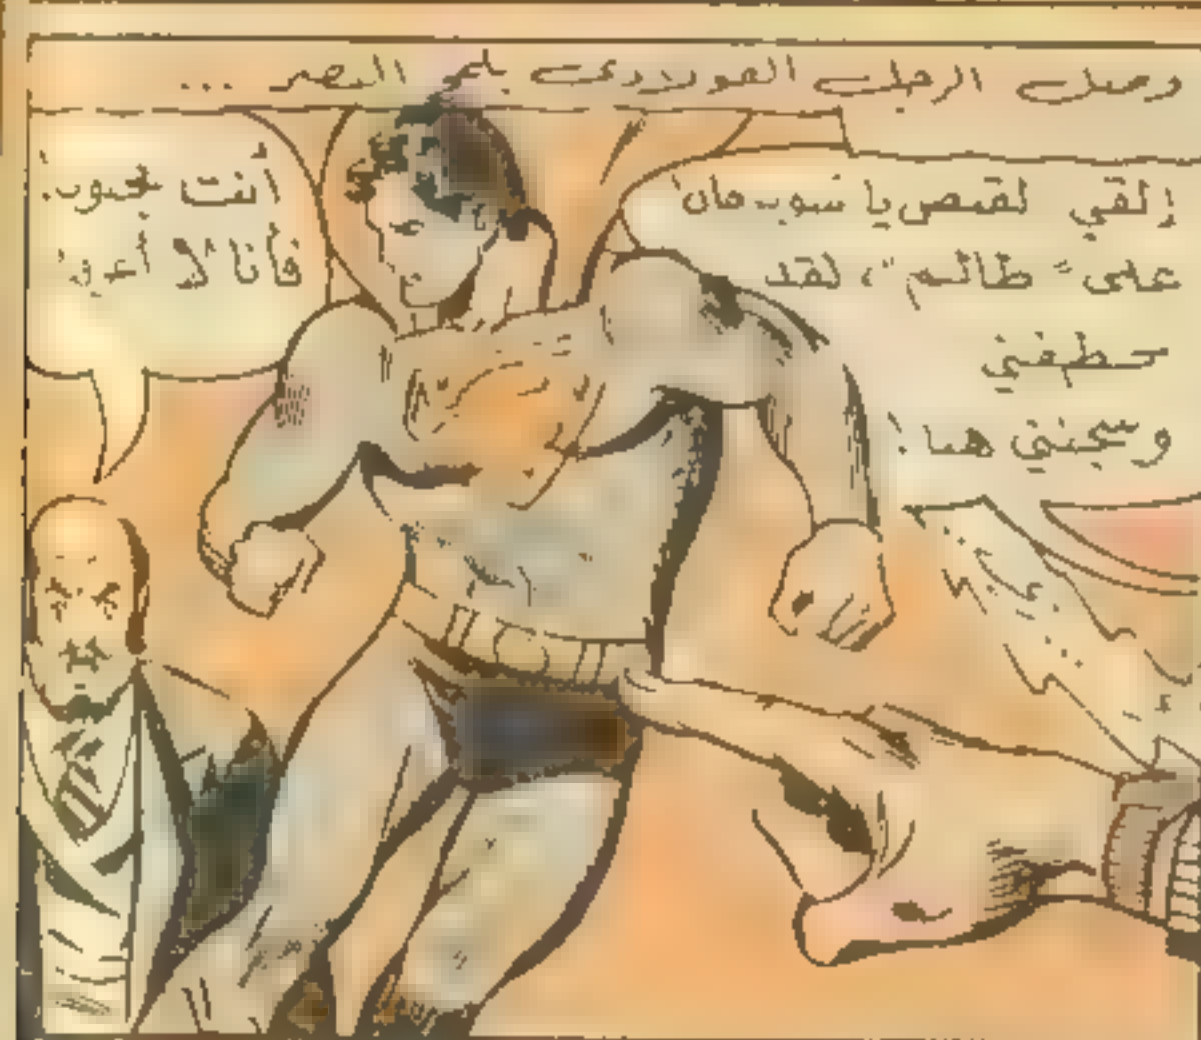 وصل الرجل الفولاذي بلمح البصر ...
إلقي لقبض يا سوبرمان
على "ظالم"، لقد
خطفني
وسجنني هنا!
أنت مجنون.
فأنا لا أعرف